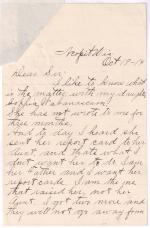 Neopit Wis
Oct 17-19
Dear Sir:
I like to know what
is the matter with my daughter
Sophia
She has not wrote to me for
three months.
And to day I heard she
sent her report card to her
Aunt, and thats what I
dont want her to do. I am
her Father and I want her
report cards. I am the one
that raised her, not her
Aunt. I got two more and
they will not go away from